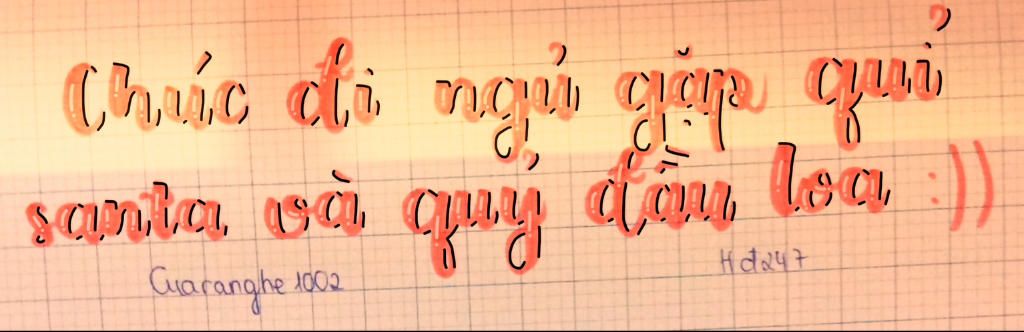 Chúc đi ngủ gặp quỉ
santa và quỷ đầu loa :))
Cuaranghe 1002
Hđ247